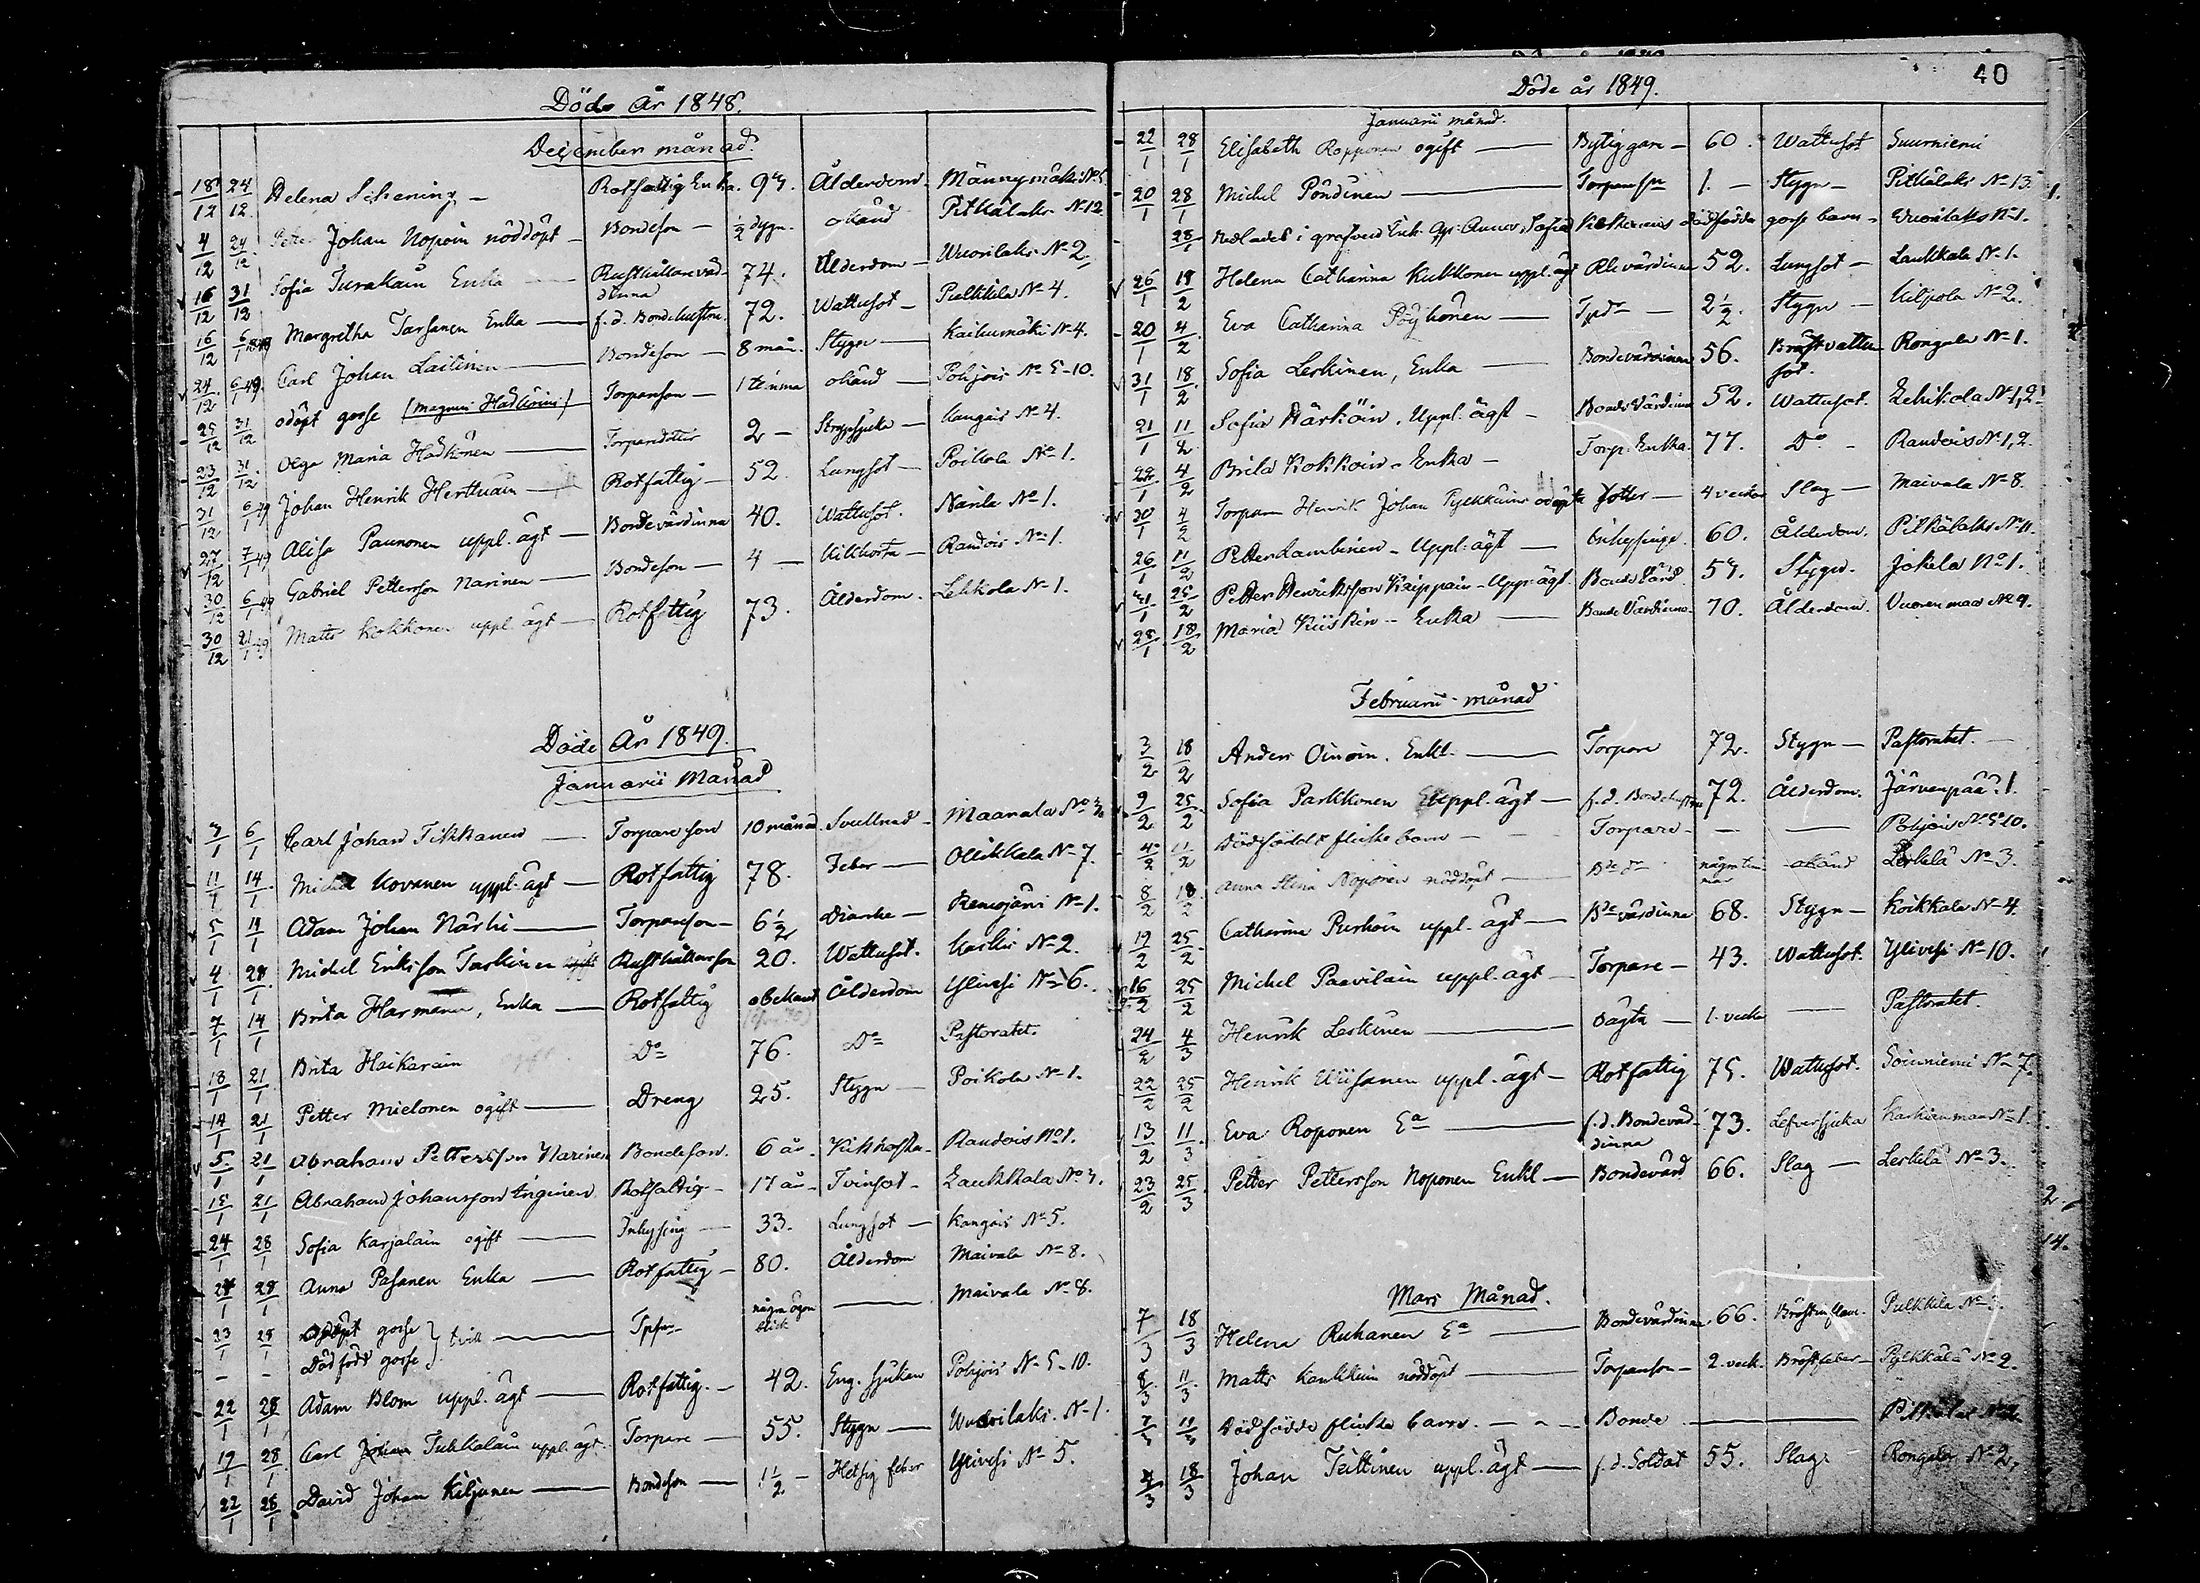 Döde År 1848.
December månad.
18/12 24/12 Helena Schering - Rotfattig Enka. 93. Ålderdom. Männynmäki No 5
4/12 24/12 Petter Johan Noponin nöddöpt - Bondeson - 1/2 dygn. okänd Pitkälaks. No 12
16/12 31/12 Sofia Turakain Enka - Rusthållarevärdinna 74. Ålderdom - Wuorilaks. No 2.
16/12 6/1 1849 Margretha Tarsanen Enka - f.d. Bondehustru. 72. Wattusot - Pulkkila No 4.
24/12 6/1 49. Carl Johan Laitinen - Bondeson - 8 mån. Stygn - Kaihumäki No 4.
25/12 31/12 odöpt gosse Torparson - 1 timma okänd - Pohjois No 5-10.
23/12 31/12 Olga Maria Hadkonen - Torparedotter 2 - Strypsjuka - Kangais No 4.
31/12 6/1 49 Johan Henrik Herttuain - Rotfattig - 52. Lungsot - Poikola No 1.
27/12 7/1 49 Alisa Paunonen uppl. ägt - Bondevärdinna 40. Wattusot. Narila No 1.
30/12 6/1 49 Gabriel Pettersson Narinen - Bondeson - 4 - Kikhosta - Randois No 1.
30/12 21/1 49 Matts Kokkonen uppl. ägt - Rotfattig 73. Ålderdom. Lehkola No 1.
Döde År 1849.
Januarii Månad
3/1 6/1 Carl Johan Tikkanen - Torpareson 10 månad. Svullnad - Maanala No
11/1 14/1 Michel Kovanen uppl. ägt - Rotfattig 78. Feber - Ollikkala No 7.
5/1 14/1 Adam Johan Närhi - Torparson - 6 1/2 Diarhe - Remojärvi No 1.
4/1 28/1 Michel Eriksson Taskinen Rusthållarson 20. Wattusot. Karhis No 2.
7/1 14/1 Brita Harmanen, Enka - Rotfattig obekant Ålderdom Ylivesi No 6.
18/1 21/1 Brita Haikarain ogift Do 76. Do Pastoratet.
14/1 21/1 Petter Mielonen ogift - Dreng 25. Stygn - Poikola No 1.
5/1 21/1 Abraham Pettersson Narinen Bondeson. 6 år. Kikhosta - Randois No 1.
15/1 21/1 Abraham Johansson Inginen Rotfattig - 17 år - Tvinsot - Laukkala No
24/1 28/1 Sofia Karjalain ogift - Inhysing - 33. Lungsot - Kangais No 5.
24/1 28/1 Anna Pasanen Enka - Rotfattig - 80. Ålderdom Maivala No 8.
23/1 28/1 Odöpt gosse } tvill. - några ögonblick - Maivala No 8.
- - Dödfödt gosse
22/1 28/1 Adam Blom uppl. ägt - Rotfattig - 42. Eng. sjukan Pohjois No 5-10.
19/1 28/1 Carl Johan Tukkalain uppl. ägt. Torpare - 55. Stygn - Wuorilaks. No 1.
22/1 28/1 David Johan Kiljunen - Bondeson - 1 1/2 - Hetsig feber Ylivesi No 5.
40
Döde år 1849.
Januarii månad.
22/1 28/1 Elisabeth Ropponen ogift - 60. Wattusot Suurniemi
20/1 28/1 Michel Pöndinen - Torparson 1. - Stygn - Pitkälaks No 13.
28/1 Nedlades i grafven dödfödda gosse barn - Wuorilaks No 1.
26/1 18/2 Helena Catharina Kukkonen uppl. ägt Rh. värdinna 52. Lungsot - Laukkala No 1.
20/1 4/2 Eva Catharina Pöyhönen - 2 1/2. Stygn - Kilpola No 2.
31/1 18/2 Sofia Leskinen, Enka - Bondevärdinna 56. Bröstvattusot. Rongala No 1.
21/1 11/2 Sofia Härköin. Uppl. ägt - Bonde Värdinna 52. Wattusot. Lehikola No 1, 2.
22/1 4/2 Brita Kokkoin - Enka - Torp. Enka. 77. Do - Randois No 1, 2.
30/1 4/2 Torpare Henrik Johan Pylkkäins odöpta dotter - 4 veckor Slag - Maivala No 8.
26/1 11/2 Petter Lambinen - Uppl. ägt - Inhysinge. 60. Ålderdom. Pitkälaks No 11.
31/1 25/2 Petter Henriksson Kaippain - Uppl. ägt. Bonde Värd 57. Stygn. Jokela No 1.
28/1 18/2 Maria Kiiskin - Enka - Bonde Värdinna. 70. Ålderdom. Vuorenmaa No 9.
Februarii månad
3/2 18/2 Anders Oinoin. Enkl. - Torpare 72. Stygn - Pastoratet.
9/2 25/2 Sofia Parkkonen Uppl. ägt - f.d. Bondehustru 72. Ålderdom. Järvenpää 1.
4/2 11/2 Dödfödt flicke barn - Torpare - - Pohjois No 5-10.
8/2 18/2 Anna Stina Noponin nöddöpt - några timmar okänd Leskelä No 3.
19/2 25/2 Catharina Purhoin uppl. ägt - Bde värdinna 68. Stygn - Koikkala No 4.
16/2 25/2 Michel Paavilain uppl. ägt - Torpare - 43. Wattusot. Ylivesi No 10.
24/2 4/3 Henrik Leskinen - oägta - 1. vecka - Pastoratet.
22/2 25/2 Henrik Wiisanen uppl. ägt - Rotfattig 75. Wattusot. Soinniemi No 7.
13/2 11/3 Eva Roponen Ea - f.d. Bondevärdinna 73. Lefversjuka No 1.
23/2 25/3 Petter Pettersson Noponen Enkl - Bondevärd 66. Slag - Leskelä No 3.
Mars Månad.
7/3 18/3 Helena Ruhanen Ea - Bondevärdinna 66. Bröstinflam. Pulkkila No 3.
8/3 11/3 Matts Kaukkuin nöddöpt - Torparson - 2. veck. Bröstfeber - Pylkkälä No 2.
7/3 11/3 Dödfödde flicke barn. - Bonde -
4/3 18/3 Johan Teittinen uppl. ägt - f.d. Soldat 55. Slag. Rongala No 2.